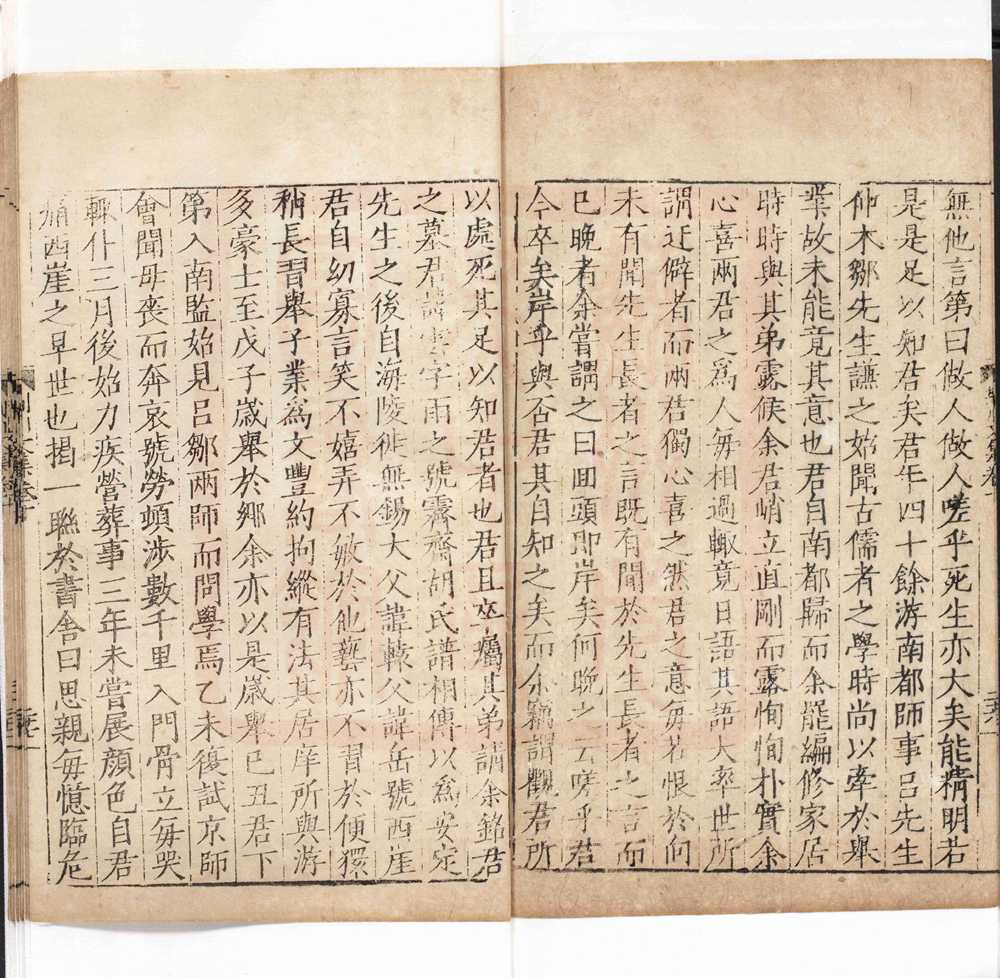 無他言第曰做人做人嗟乎死生亦大矣能精明若
是是足以知君矣君年四十餘游南都師事呂先生
仲木鄒先生謙之始聞古儒者之學時尚以牽於舉
業故未能竟其意也君自南都歸而余罷編修家居
時時與其弟露候余君峭立直剛而露恂恂朴實余
心喜兩君之為人每相過輒竟日語其語大率世所
謂迂僻者而兩君獨心喜之然君之意每若恨於向
未有聞先生長者之言既有聞於先生長者之言而
已晚者余嘗謂之曰回頭即岸矣何晚之云嗟乎君
今卒矣岸乎與否君其自知之矣而余竊謂觀君所
以處死其足以知君者也君且卒屬其弟請余銘君
之墓君諱雲字雨之號霽齋胡氏譜相傳以為安定
先生之後自海陵徙無錫大父諱轅父諱岳號西崖
君自幼寡言笑不嬉弄不敏於他藝亦不習於便獧
稍長習舉子業為文豐約拘縱有法其居庠所與游
多豪士至戊子歲舉於鄉余亦以是歲舉己丑君下
第入南監始見呂鄒兩師而問學焉乙未復試京師
會聞母喪而奔哀號勞頓涉數千里入門骨立每哭
輒仆三月後始力疾營葬事三年未嘗展顏色自君
痛西崖之早世也揭一聯於書舍曰思親每憶臨危